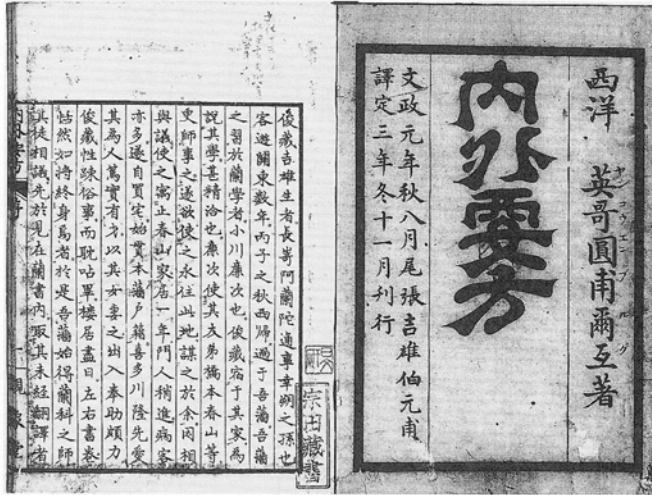 西洋 英哥圓甫爾互著
ヤンコウエンプルグ
内外要方
文政元年秋八月尾張吉雄伯元甫
譯定三年冬十一月刊行
俊藏吉雄生者長崎阿蘭陀通事幸朔之孫也
客遊關東数年丙子之秋西歸過于吾藩吾藩
之習於蘭學者小川廉次也俊藏宿于其家為
說其學甚精洽也廉次使其友弟橋本春山等
更師事之遂欲使之永住此地謀之於余因相
與議使之寓止春山家居一年門人稍進病客
亦多遂自買宅始貫本藩戸籍喜多川隆先愛
其為人篤實有才以其女妻之出入奉助頗力
俊藏性踈俗事而耽呫畢樓居盡日左右書卷
怡然如將終身焉者於是吾藩始得蘭科之師
其徒相議先於見在蘭書内取其未經翻譯者
宗田藏書